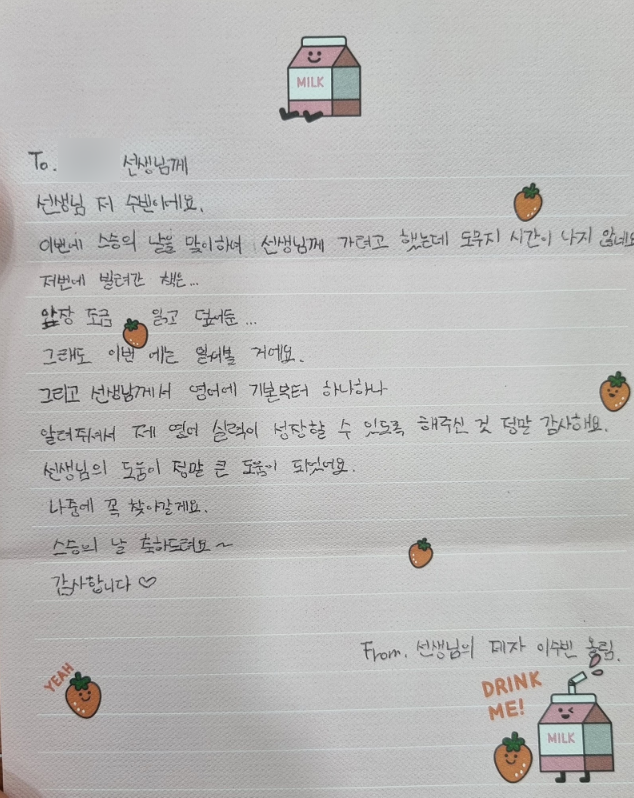 MILK
To. 선생님께
선생님 저 수빈이에요.
이번에 스승의 날을 맞이하여 선생님께 가려고 했는데 도무지 시간이 나지 않네요
저번에 빌려간 책은...
앞장 조금 읽고 덮어둔...
그래도 이번 에는 읽어볼 거에요.
그리고 선생님께서 영어에 기본부터 하나하나
알려줘셔서 제 영어 실력이 성장할 수 있도록 해주신 것 정말 감사해요.
선생님의 도움이 정말 큰 도움이 되었어요.
나중에 꼭 찾아갈게요.
스승의 날 축하드려요~
감사합니다 ♡
From. 선생님의 제자 이수빈 올림.
YEAH
DRINK
ME!
MILK